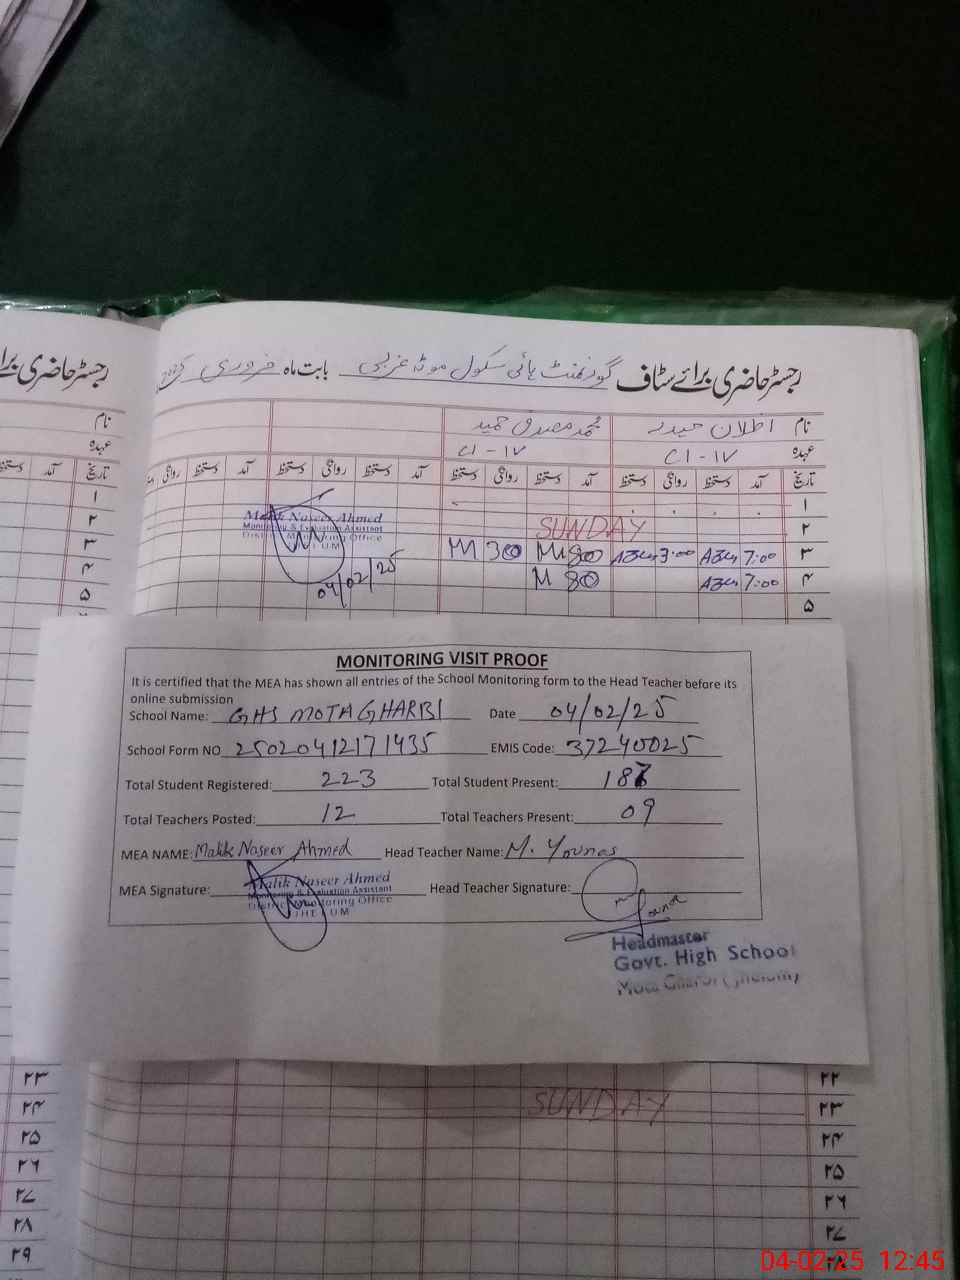 رجسٹر حاضری برائے سٹاف گورنمنٹ ہائی سکول موٹہ غربی بابت ماہ فروری
رجسٹر حاضری
نام حیدر محمد مصدق حمید
عہدہ C1-IV C1-IV
تاریخ آمد دستخط روانگی دستخط آمد دستخط روانگی دستخط آمد دستخط روانگی دستخط آمد دستخط روانگی
آمد دستخط
۱
۲ SUNDAY
۳ 7:00 3:00 300
۴ 7:00
۵
Malik Naseer Ahmed
Monitoring & Evaluation Assistant
District Monitoring Office
04/02/25
نام
عہدہ
تاریخ
۱
۲
۳
۴
۵
MONITORING VISIT PROOF
It is certified that the MEA has shown all entries of the School Monitoring form to the Head Teacher before its
online submission
School Name: GHS MOTA GHARBI Date 04/02/25
School Form NO 25020412171435 EMIS Code: 37240025
Total Student Registered: 223 Total Student Present: 187
Total Teachers Posted: 12 Total Teachers Present: 09
MEA NAME: Malik Naseer Ahmed Head Teacher Name: M. Younas
MEA Signature: Head Teacher Signature:
Malik Naseer Ahmed
Monitoring & Evaluation Assistant
District Monitoring Office
JHELUM
Headmaster
Govt. High School
Mota Gharbi (Jhelum)
۲۲
۲۳ SUNDAY
۲۴
۲۵
۲۶
۲۷
۲۸
۲۳
۲۴
۲۵
۲۶
۲۷
۲۸
۲۹
04-02-25 12:45